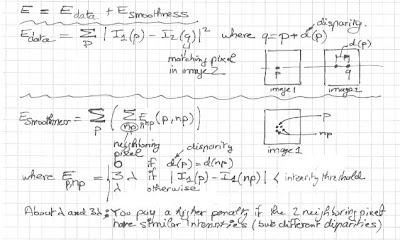 E = E data + E smoothness
E data = Σ p | I1(p) - I2(q) |² where q = p + d(p)
disparity.
matching pixel
in image 2
d(p)
p
p q
image 1
image 2
E smoothness = Σ p ( Σ np E p,np (p, np) )
neighboring
pixel
disparity
p
np
image 1
where E p,np = { 0 if d(p) = d(np)
3λ if | I1(p) - I1(np) | < intensity threshold
λ otherwise
About λ and 3λ : You pay a higher penalty if the 2 neighboring pixels
have similar intensities (but different disparities)